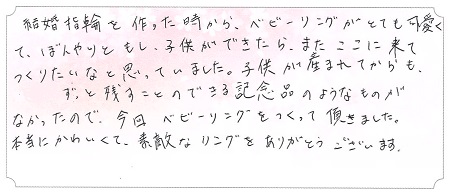 結婚指輪を作った時から、ベビーリングがとても可愛く
て、ぼんやりともし、子供ができたら、またここに来て
つくりたいなと思っていました。子供が産まれてからも、
ずっと残すことのできる記念品のようなものが
なかったので、今回ベビーリングをつくって頂きました。
本当にかわいくて、素敵なリングをありがとうございます.